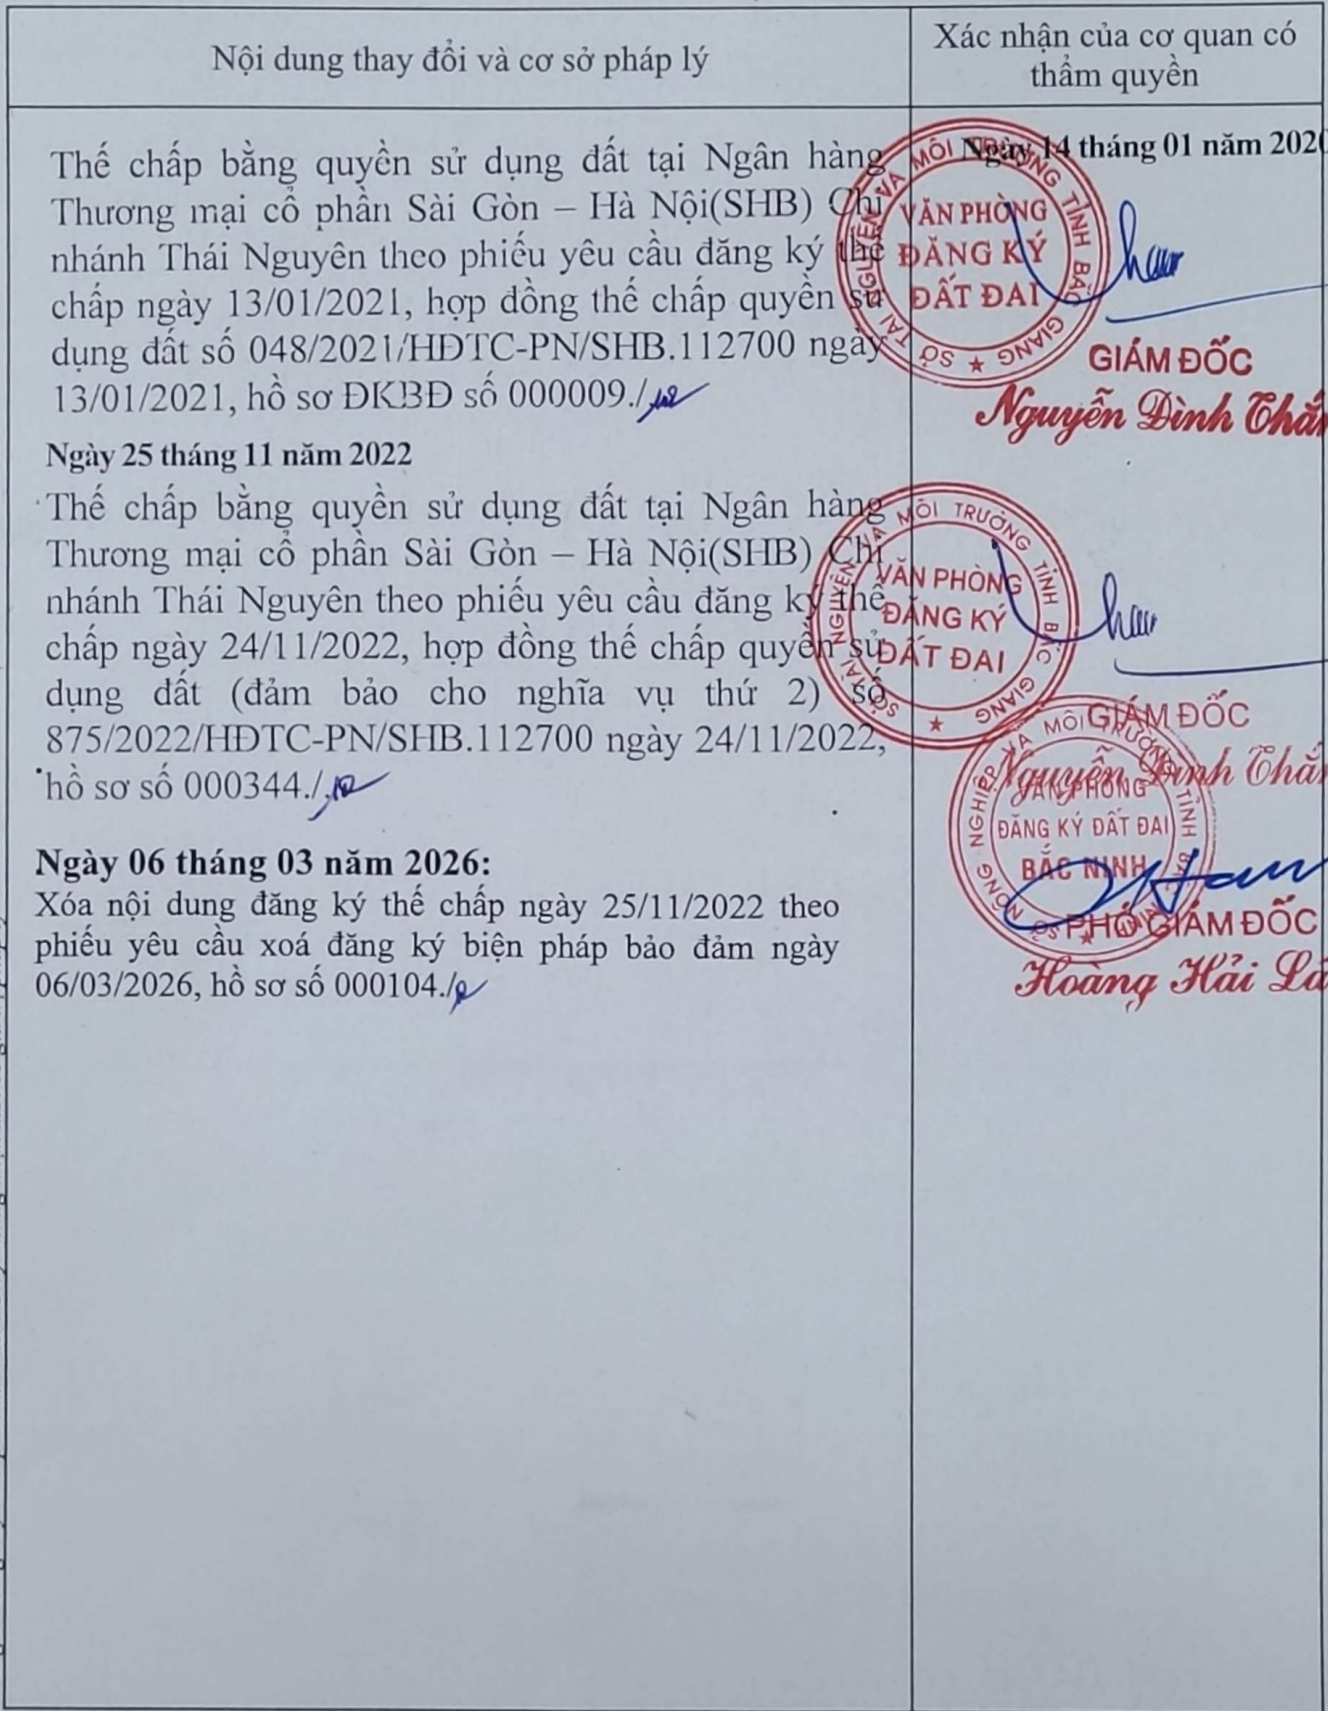 Nội dung thay đổi và cơ sở pháp lý
Xác nhận của cơ quan có
thẩm quyền
Thế chấp bằng quyền sử dụng đất tại Ngân hàng
Thương mại cổ phần Sài Gòn – Hà Nội(SHB) Chi
nhánh Thái Nguyên theo phiếu yêu cầu đăng ký thế
chấp ngày 13/01/2021, hợp đồng thế chấp quyền sử
dụng đất số 048/2021/HĐTC-PN/SHB.112700 ngày
13/01/2021, hồ sơ ĐKBĐ số 000009./
Ngày 14 tháng 01 năm 2020
SỞ TÀI NGUYÊN VÀ MÔI TRƯỜNG TỈNH BẮC GIANG
VĂN PHÒNG
ĐĂNG KÝ
ĐẤT ĐAI
GIÁM ĐỐC
Nguyễn Đình
Ngày 25 tháng 11 năm 2022
Thế chấp bằng quyền sử dụng đất tại Ngân hàng
Thương mại cổ phần Sài Gòn – Hà Nội(SHB) Chi
nhánh Thái Nguyên theo phiếu yêu cầu đăng ký thế
chấp ngày 24/11/2022, hợp đồng thế chấp quyền sử
dụng đất (đảm bảo cho nghĩa vụ thứ 2) số
875/2022/HĐTC-PN/SHB.112700 ngày 24/11/2022,
hồ sơ số 000344./
SỞ TÀI NGUYÊN VÀ MÔI TRƯỜNG TỈNH BẮC GIANG
VĂN PHÒNG
ĐĂNG KÝ
ĐẤT ĐAI
GIÁM ĐỐC
Nguyễn Đình
Ngày 06 tháng 03 năm 2026:
Xóa nội dung đăng ký thế chấp ngày 25/11/2022 theo
phiếu yêu cầu xoá đăng ký biện pháp bảo đảm ngày
06/03/2026, hồ sơ số 000104./
SỞ NÔNG NGHIỆP VÀ MÔI TRƯỜNG TỈNH BẮC NINH
VĂN PHÒNG
ĐĂNG KÝ ĐẤT ĐAI
BẮC NINH
PHÓ GIÁM ĐỐC
Hoàng Hải